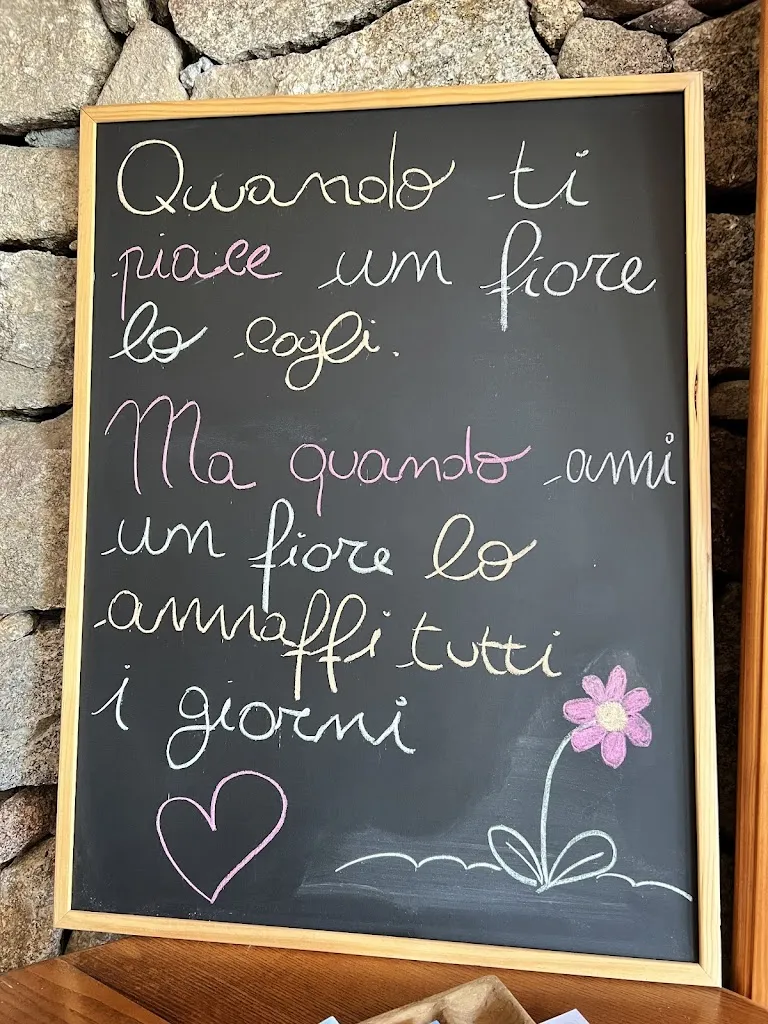 Quando ti
piace un fiore
lo cogli.
Ma quando ami
un fiore lo
annaffi tutti
i giorni